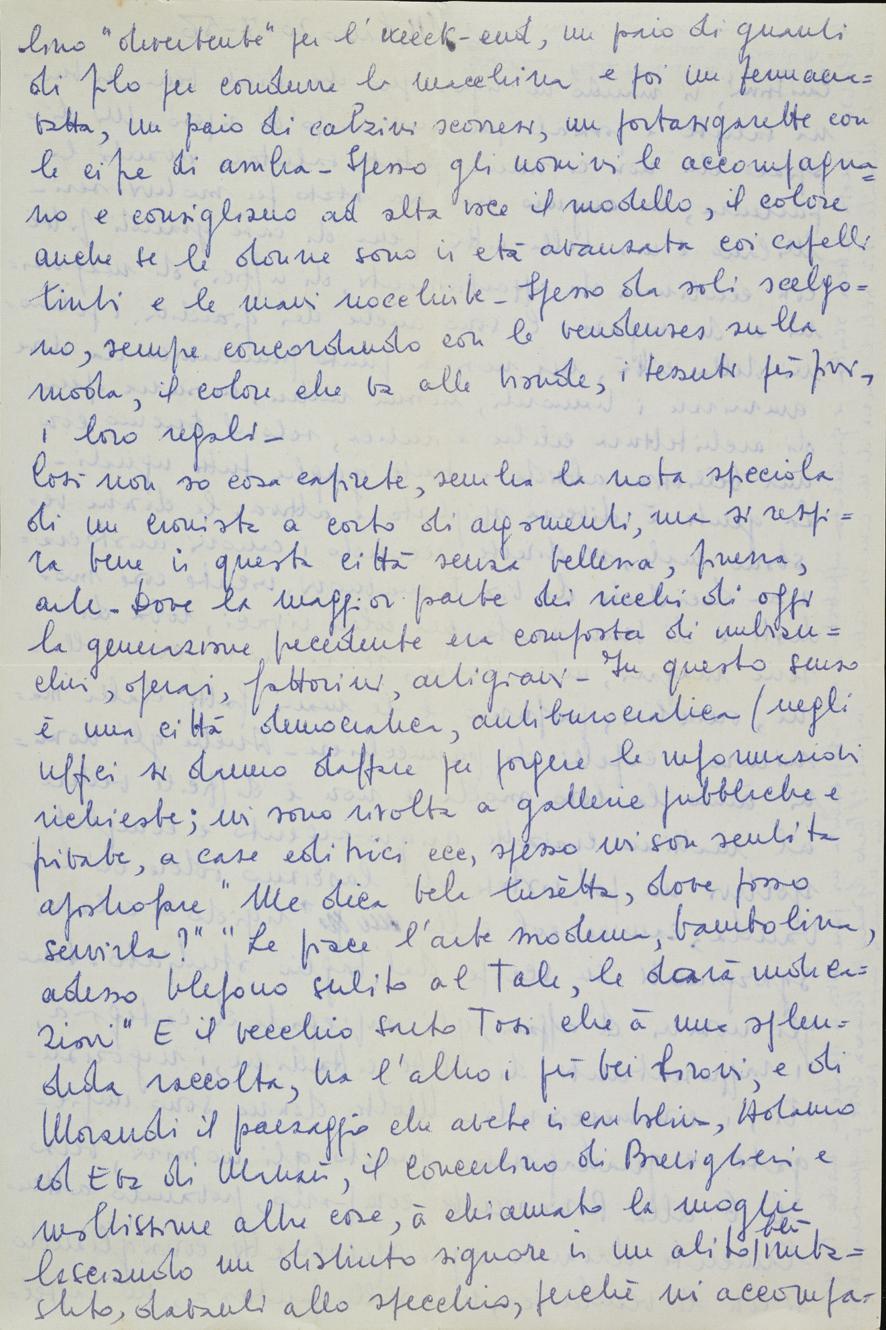 lino "divertente" per l'week-end, un paio di guanti
di filo per condurre la macchina e poi un fermacra=
vatta, un paio di calzini scozzesi, un portasigarette con
le cifre di ambra - Spesso gli uomini le accompagna=
no e consigliano ad alta voce il modello, il colore
anche se le donne sono in età avanzata coi capelli
tinti e le mani nocchiute - Spesso da soli scelgo=
no, sempre concordando con le vendeuses sulla
moda, il colore che va alle bionde, i tessuti più puri,
i loro regali -
Così non so cosa capirete, sembra la nota spicciola
di un cronista a corto di argomenti, ma si respi=
ra bene in questa città senza bellezza, purezza,
arte - Dove la maggior parte dei ricchi di oggi
la generazione precedente era composta di imbian=
chini, operai, fattorini, artigiani - In questo senso
è una città democratica, antiburocratica (negli
uffici si danno daffare per porgere le informazioni
richieste; mi sono rivolta a gallerie pubbliche e
private, a case editrici ecc, spesso mi son sentita
apostrofare "Me dica bela tusètta, dove posso
servirla?" "Le piace l'arte moderna, bambolina,
adesso telefono subito al Tale, le darà indica=
zioni" E il vecchio Tosi che à una splen=
dida raccolta, tra l'altro i più bei Sironi, e di
Morandi il paesaggio che avete in cartolina, Adamo
ed Eva di il Concertino di e
moltissime altre cose, à chiamato la moglie
lasciando un distinto signore in un abito ben imba=
stito, davanti allo specchio, perchè mi accompa=